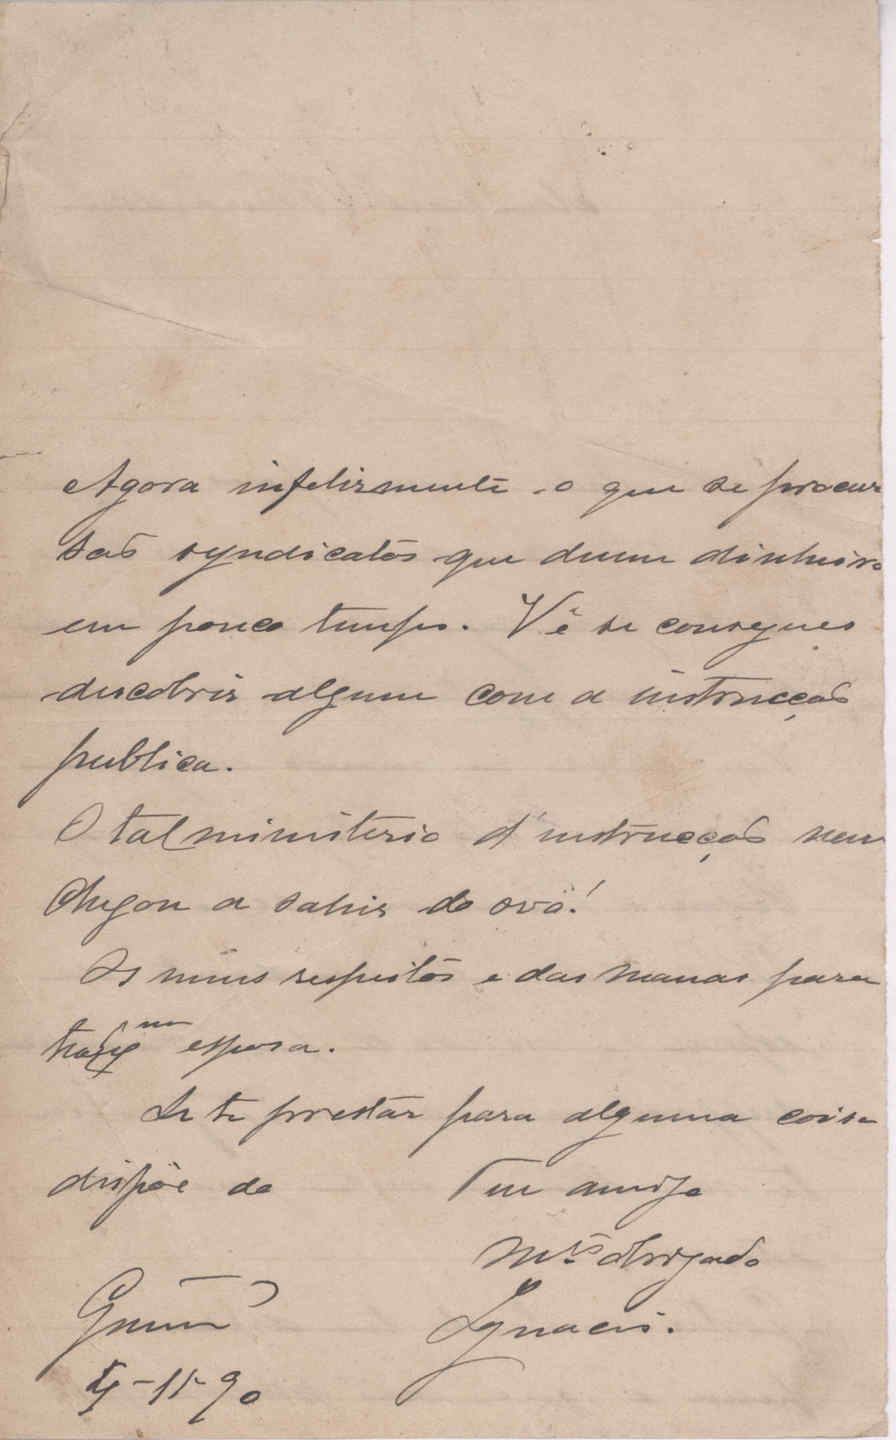 Agora infelizmente o que se procura
são syndicatos que deem dinheiro
em pouco tempo. Vê se consegues
descobrir algum com a instrucção
publica.
O tal ministerio d'instrucção nem
chegou a sahir do ovo!
Os meus respeitos e das manas para
esposa.
Se te prestar para alguma coisa
dispõe do Teu amigo
Mtº obrigado
Guimes Ignacio.
4-11-90